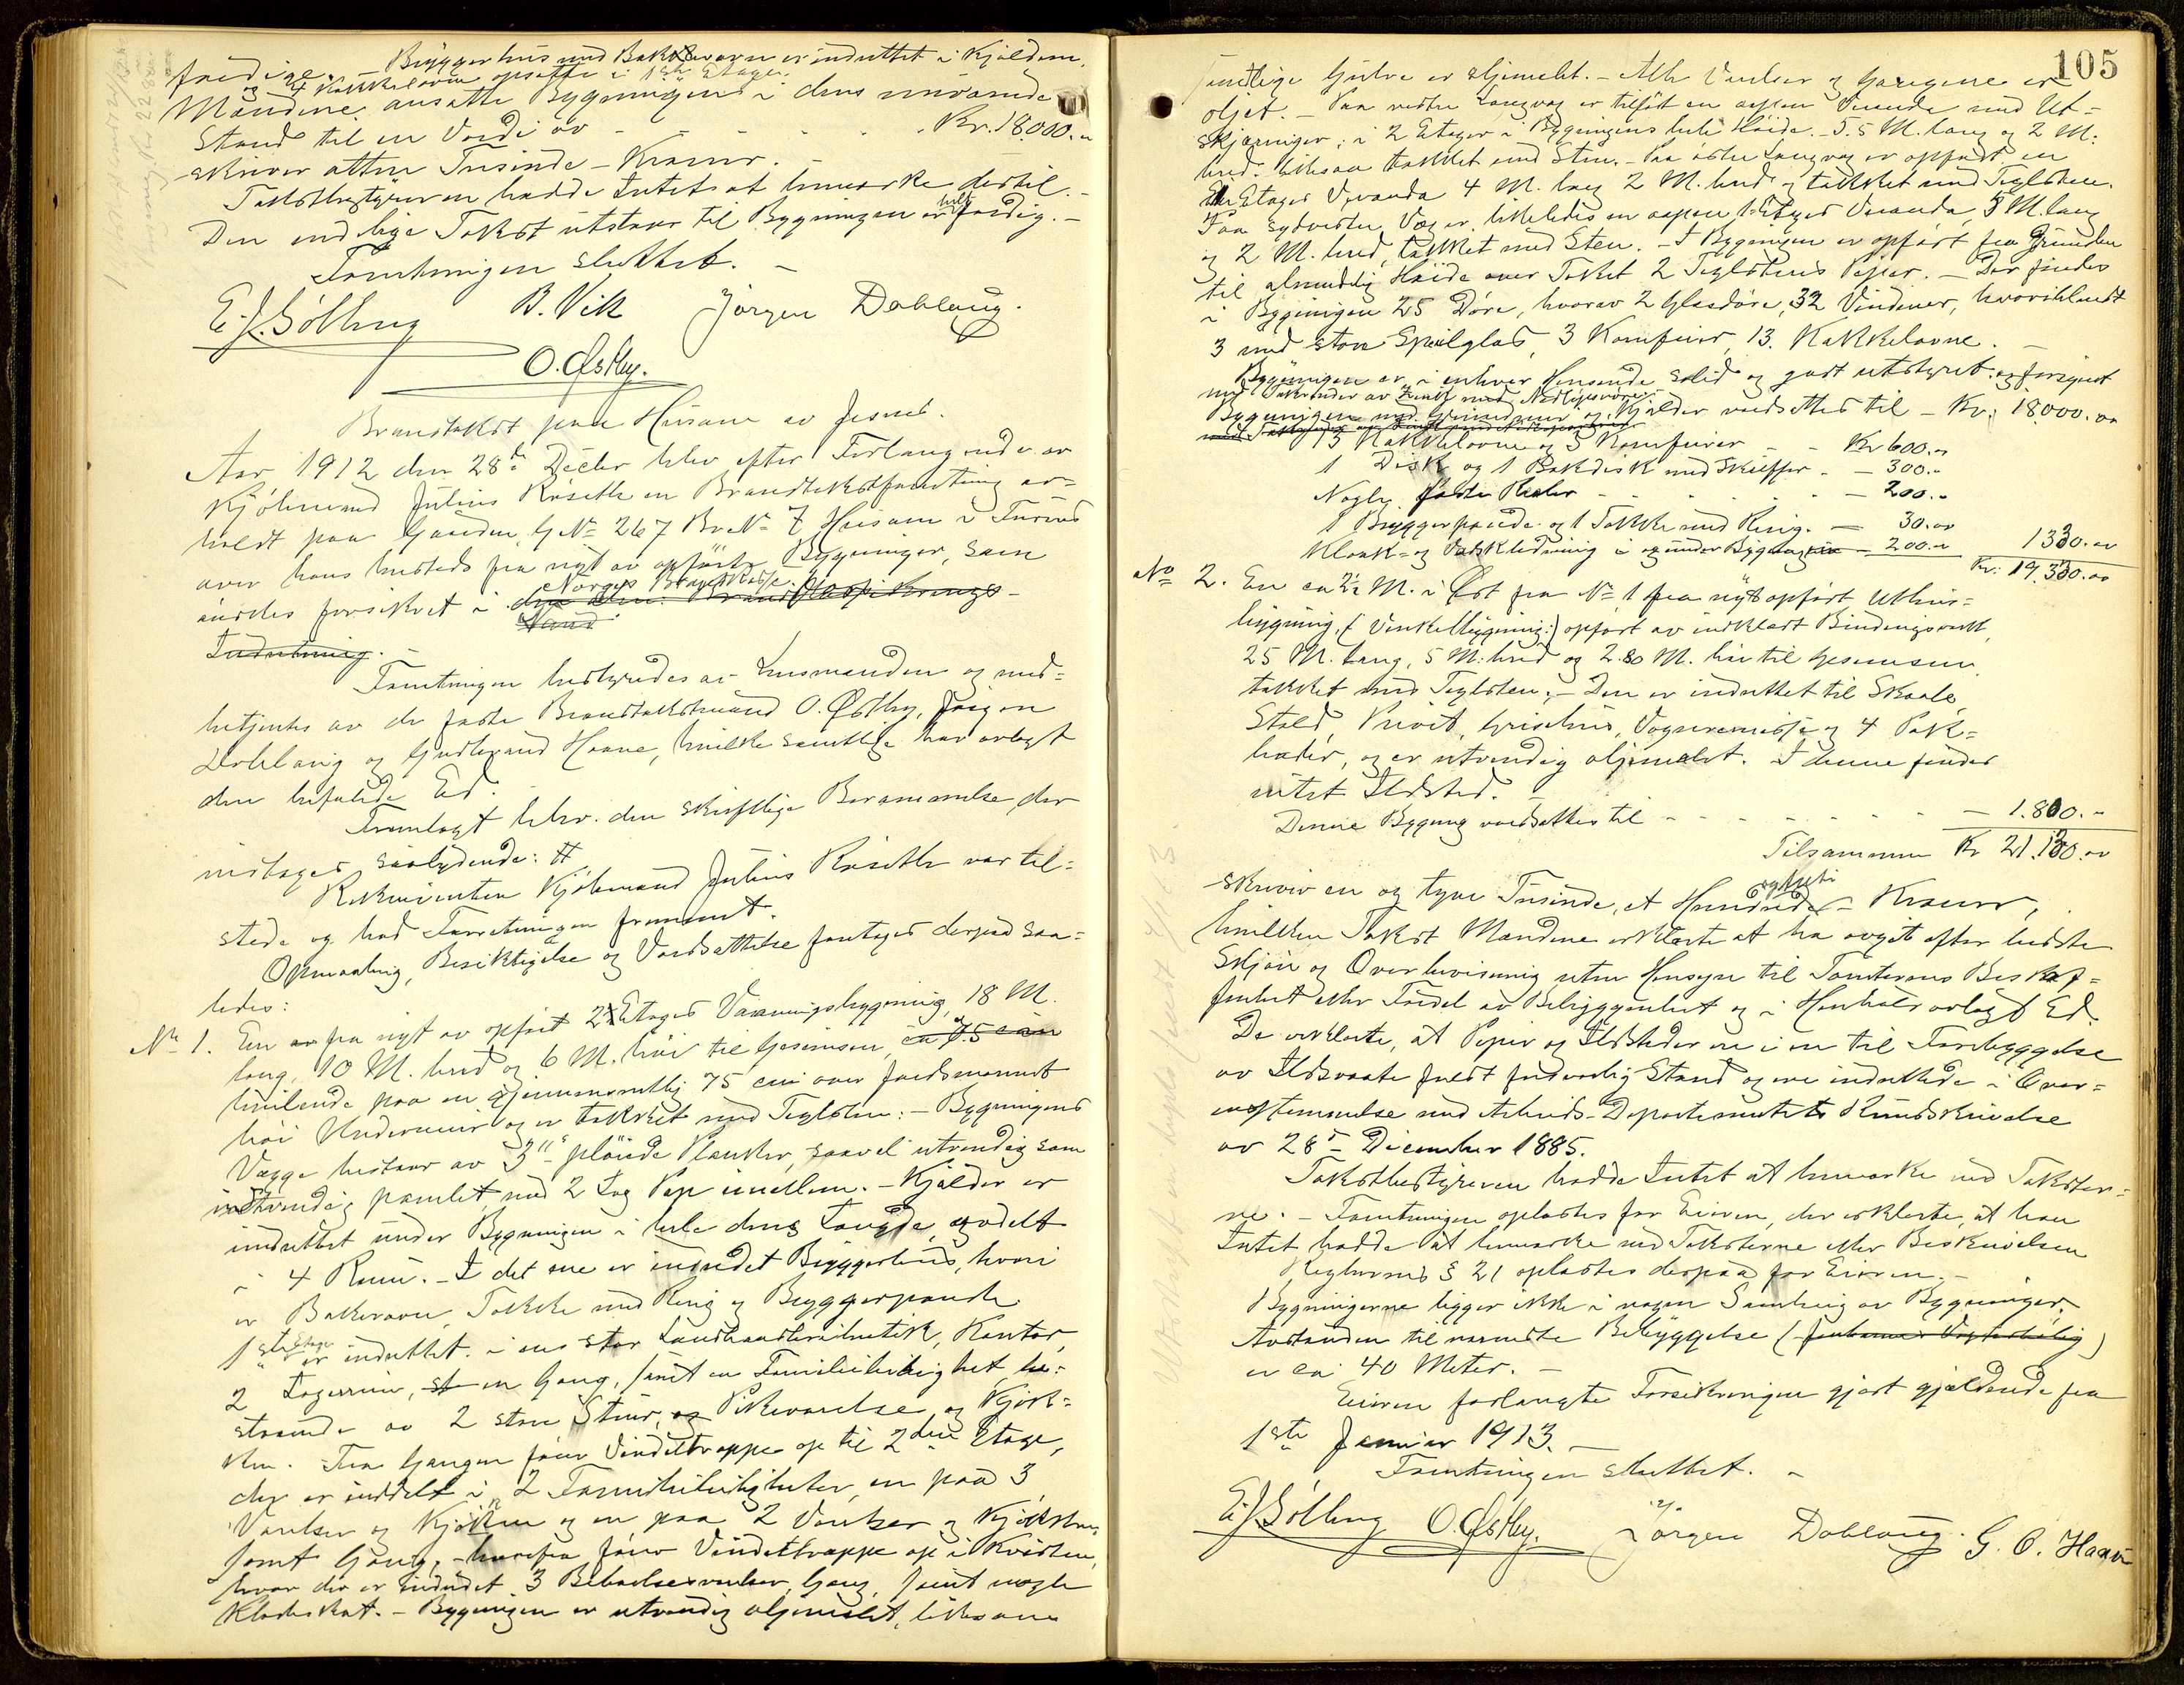 færdige. Bryggerhus med Bakerovn er indrettet i Kjælderen,
og 4 Kakkelovne opsatte i 1ste Etage.
Mændene ansatte Bygningens i dens nuværende
Stand til en Værdi av - - - - Kr. 18.000.-
skriver atten Tusinde - Kroner. -
Takstbestyreren hadde Intet at bemærke dertil. -
Den endelige Takst utstaar til Bygningen er helt færdig. -
Forretningen sluttet. -
E. J. Sølling B. Vik Jørgen Dæhlang.
O. Østby.
Brandtakst paa Husane av Jesnes.
Aar 1912 den 28de Decbr blev efter Forlangende av
Kjøbmand Julius Røseth en Brandtakstforretning av=
holdt paa Gaarden, G.No 267 Br.No 7 Husane i Furnes
over hans husteds fra nyt av opførte Bygninger, som
ønskes forsikret i Norges Brandkasse.
Indretning. -
Forretningen bestyredes av Lensmanden og med=
betjentes av de faste Brandtakstmænd O. Østby, Jørgen
Dæhlang og Gudbrand Haave, hvilke samtlige har avlagt
den befalede Ed.
Fremlagt blev den skriftlige Berammelse der
indtages saalydende: #
Rekvirenten Kjøbmand Julius Røseth var til=
stede og hos Forretningen fremmet.
Opmaaling, Besiktigelse og Værdsættelse foretages derpaa saa=
ledes:
No 1. En av fra nyt av opført 2 Etages Vaaningsbygning, 18 M.
lang, 10 M. bred og 6 M. høi til Gesimsen,
hvilende paa en gjennemsnitlig 75 cm over Jordsmonnet
høi Undermur og er tækket med Teglsten: Bygningens
Vægge bestaar av 3" pløiede Planker, saavel utvendig som
indvendig panelet, med 2 Lag Pap imellem. - Kjælder er
indrettet under Bygningen i hele dens Længde, avdelt
i 4 Rum. - I det ene er indredet Bryggerhus, hvori
er Bakerovn, Takke med Ring og Bryggerpande.
1ste Etage er indrettet i en stor Landhandlerbutik, Kontor,
2 Lagerrum, en Gang, samt en Familieleilighet be=
staaende av 2 store Stuer, Pikeværelse og Kjøk=
ken. Fra Gangen fører Vindeltrappe op til 2den Etage,
der er inddelt i 2 Familieleiligheter, en paa 3
Værelser og Kjøkken og en paa 2 Værelser og Kjøkken,
samt Gang, - hvorfra fører Vindeltrappe op i Kvisten,
hvor der er indredet 3 Beboelsesværelser, Gang, samt nogle
Klæskot. - Bygningen er utvendig oljemalet, likesom
105
samtlige Gulve er oljemalt. - Alle Værelser og Gangene er
oljet. - Paa vestre Langvæg er tilføt en aapen Veranda med Ut=
skjæringer; i 2 Etager i Bygningens hele Høide. - 5.5 M. lang og 2 M.
bred. likesaa tækket med Sten. - Paa østre Langvæg er opført en
Etages Veranda 4 M. lang 2 M. bred og tækket med Teglsten.
Paa sydvestre Væg er likeledes en aapen 1 Etages Veranda, 3 M. lang
og 2 M. bred, tækket med Sten. - I Bygningen er opført fra Grunden
til almindelig Høide over Taket 2 Teglstens Piper. - Der findes
i Bygningen 25 Døre, hvorav 2 Glasdøre, 32 Vinduer, hvoriblandt
3 med store Speilglas, 3 Komfurer, 13 Kakkelovne. -
Bygningen er i enhver Henseende solid og godt utstyret og forsynet
med Takrender av Zink med Nedløpsrører.
Bygningen med Grundmur og Kjælder værdsættes til - Kr. 18000.oo
13 Kakkelovne og 3 Komfurer - - Kr 600.-
1 Disk og 1 Bakdisk med Skuffer - - 300.-
Nogle faste Reoler - - - - - 200.-
1 Bryggerpande og 1 Takke med Ring. - 30.oo
Kloak- og Vaskledning i og under Bygningen - 200.- 1330.oo
Kr. 19.330.oo
No 2. En ca 22 M. i Øst fra No 1 fra nyt opført Uthus=
bygning, (Vinkelbygning:) opført av indklædt Bindingsverk,
25 M. lang, 5 M. bred og 2.80 M. høi til Gesimsen
tækket med Teglsten. - Den er indrettet til Skaale,
Stald, Privet, Grisehus, Vognremisse og 4 Pak=
boder, og er utvendig oljemalet. I denne findes
intet Ildsted. -
Denne Bygning værdsættes til - - - - - - 1.800.-
Tilsammen Kr 21.130.oo
skriver en og tyve Tusinde, et Hundrede og tretti - Kroner,
hvilken Takst Mændene erklærte at ha avgit efter bedste
Skjøn og Overbevisning uten Hensyn til Tomternes Beskaf=
fenhet eller Fordel av Beliggenhet og i Henhold avlagt Ed.
De erklærte, at Piper og Ildsteder ere i en til Forebyggelse
av Ildsvaade fuldt forsvarlig Stand og ere indrettede i Over=
ensstemmelse med Arbeids-Departementets Rundskrivelse
av 28de December 1885.
Takstbestyreren hadde Intet at bemærke ved Takster=
ne. - Forretningen oplæstes for Eieren, der erklærte, at han
Intet hadde at bemærke ved Taksterne eller Beskrivelsen
Reglernes § 21 oplæstes derpaa for Eieren. -
Bygningerne ligger ikke i nogen Samling av Bygninger.
Avstanden til nærmeste Bebyggelse
er ca 40 Meter. -
Eieren forlangte Forsikringen gjort gjældende fra
1ste Januar 1913. -
Forretningen sluttet. -
E. J. Sølling O. Østby. Jørgen Dæhlang. G. O. Haave